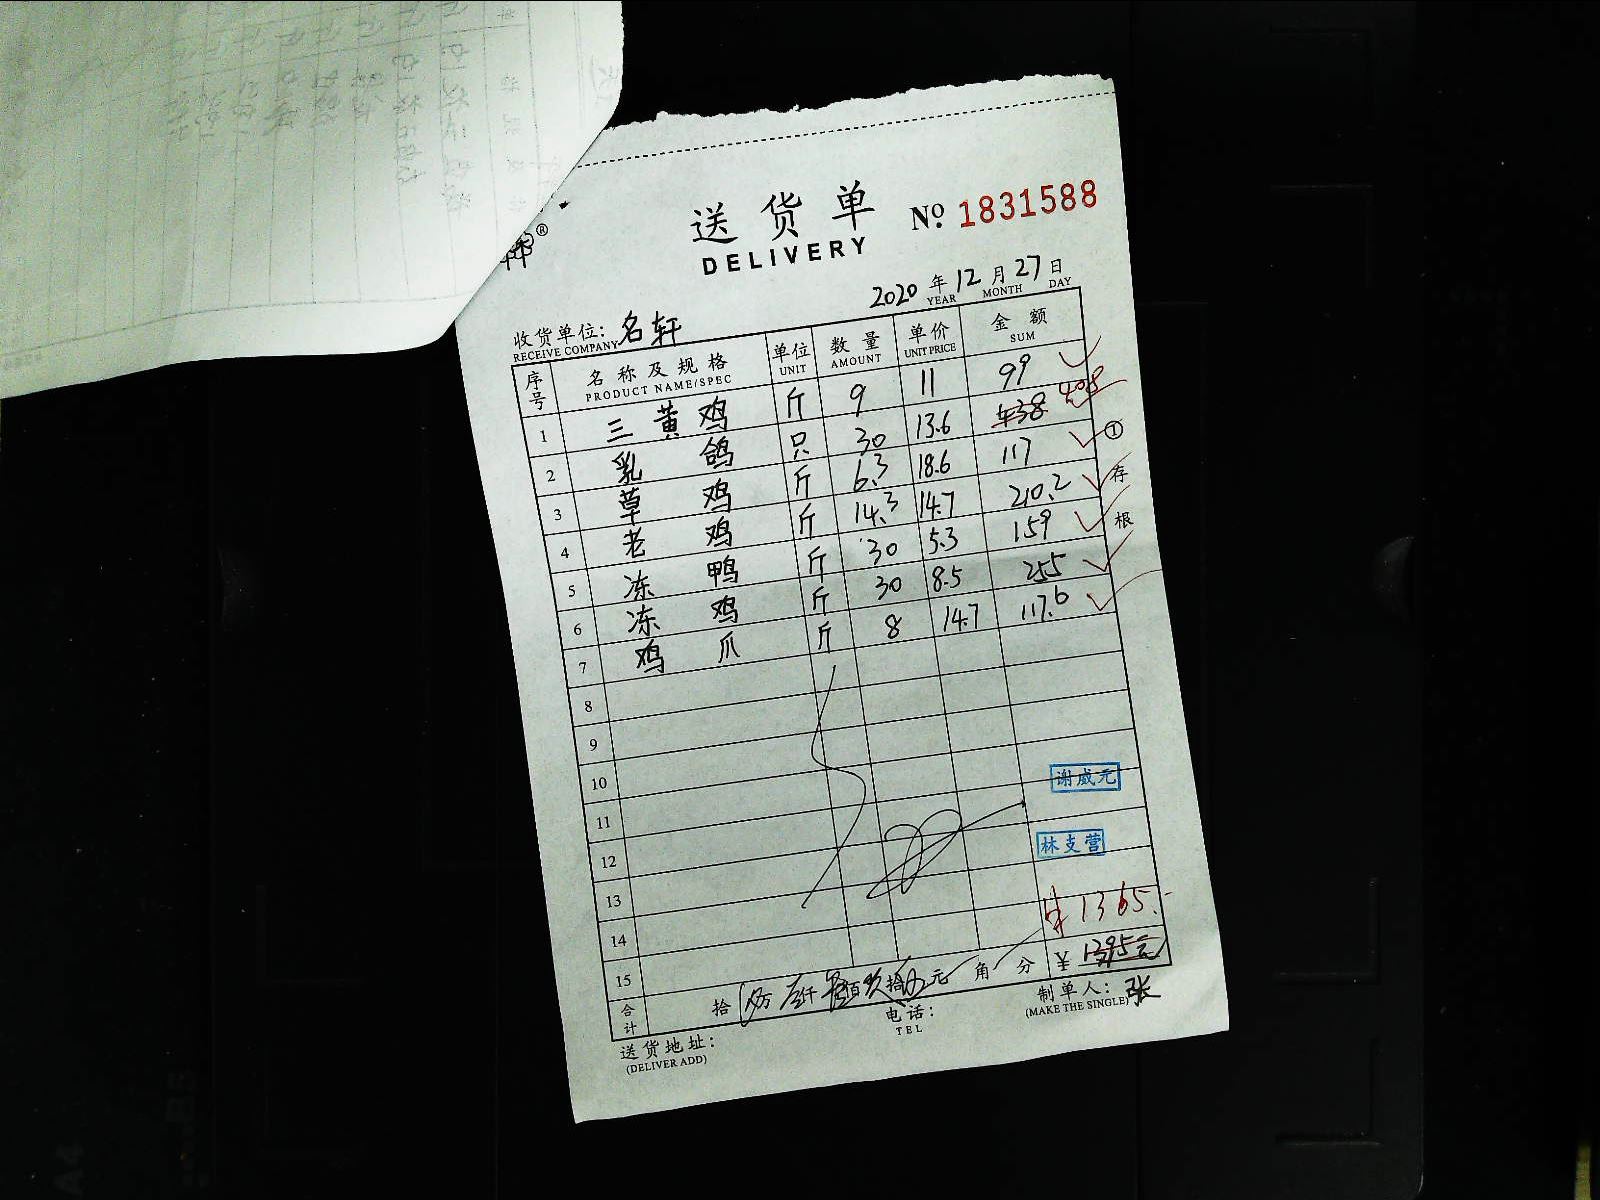 送货单 № 1831588
DELIVERY
2020年12月27日
YEAR MONTH DAY
收货单位: 名轩
RECEIVE COMPANY
序号 名称及规格 单位 数量 单价 金额
PRODUCT NAME/SPEC UNIT AMOUNT UNIT PRICE SUM
1 三黄鸡 斤 9 11 99
2 乳鸽 只 30 13.6 438 408
3 草鸡 斤 6.3 18.6 117
4 老鸡 斤 14.3 14.7 210.2
5 冻鸭 斤 30 5.3 159
6 冻鸡 斤 30 8.5 255
7 鸡爪 斤 8 14.7 117.6
8
9
10
11
12
13
14
15
①存根
谢威元
林支营
¥1365.
合计 拾 万 仟 佰 拾 元 角 分 ¥ 1395元
送货地址: 电话: 制单人: 张
(DELIVER ADD) TEL (MAKE THE SINGLE)